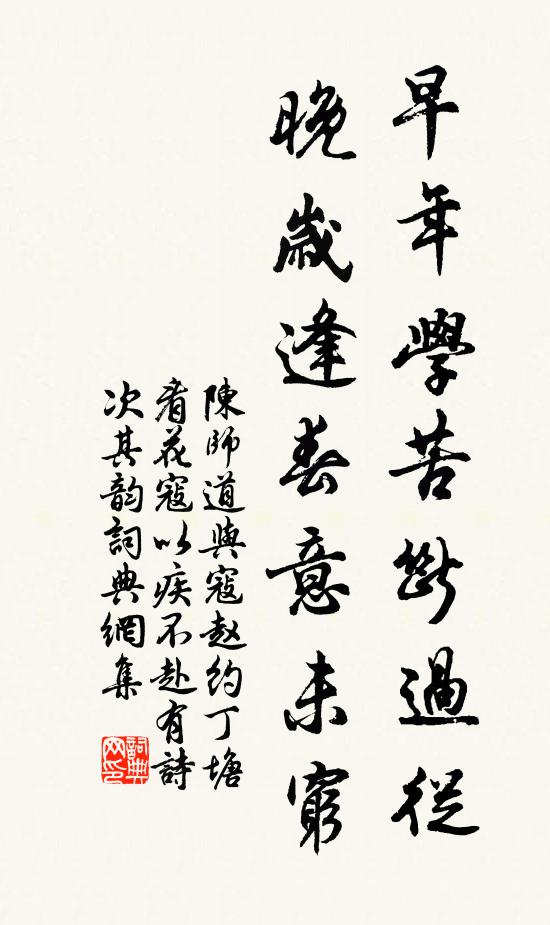 早年學苦斷過從
晚歲逢春意未窮
陳師道與寇赵約丁塘
看花寇以疾不赴有詩
次其韵詞典網集
詞典
网印